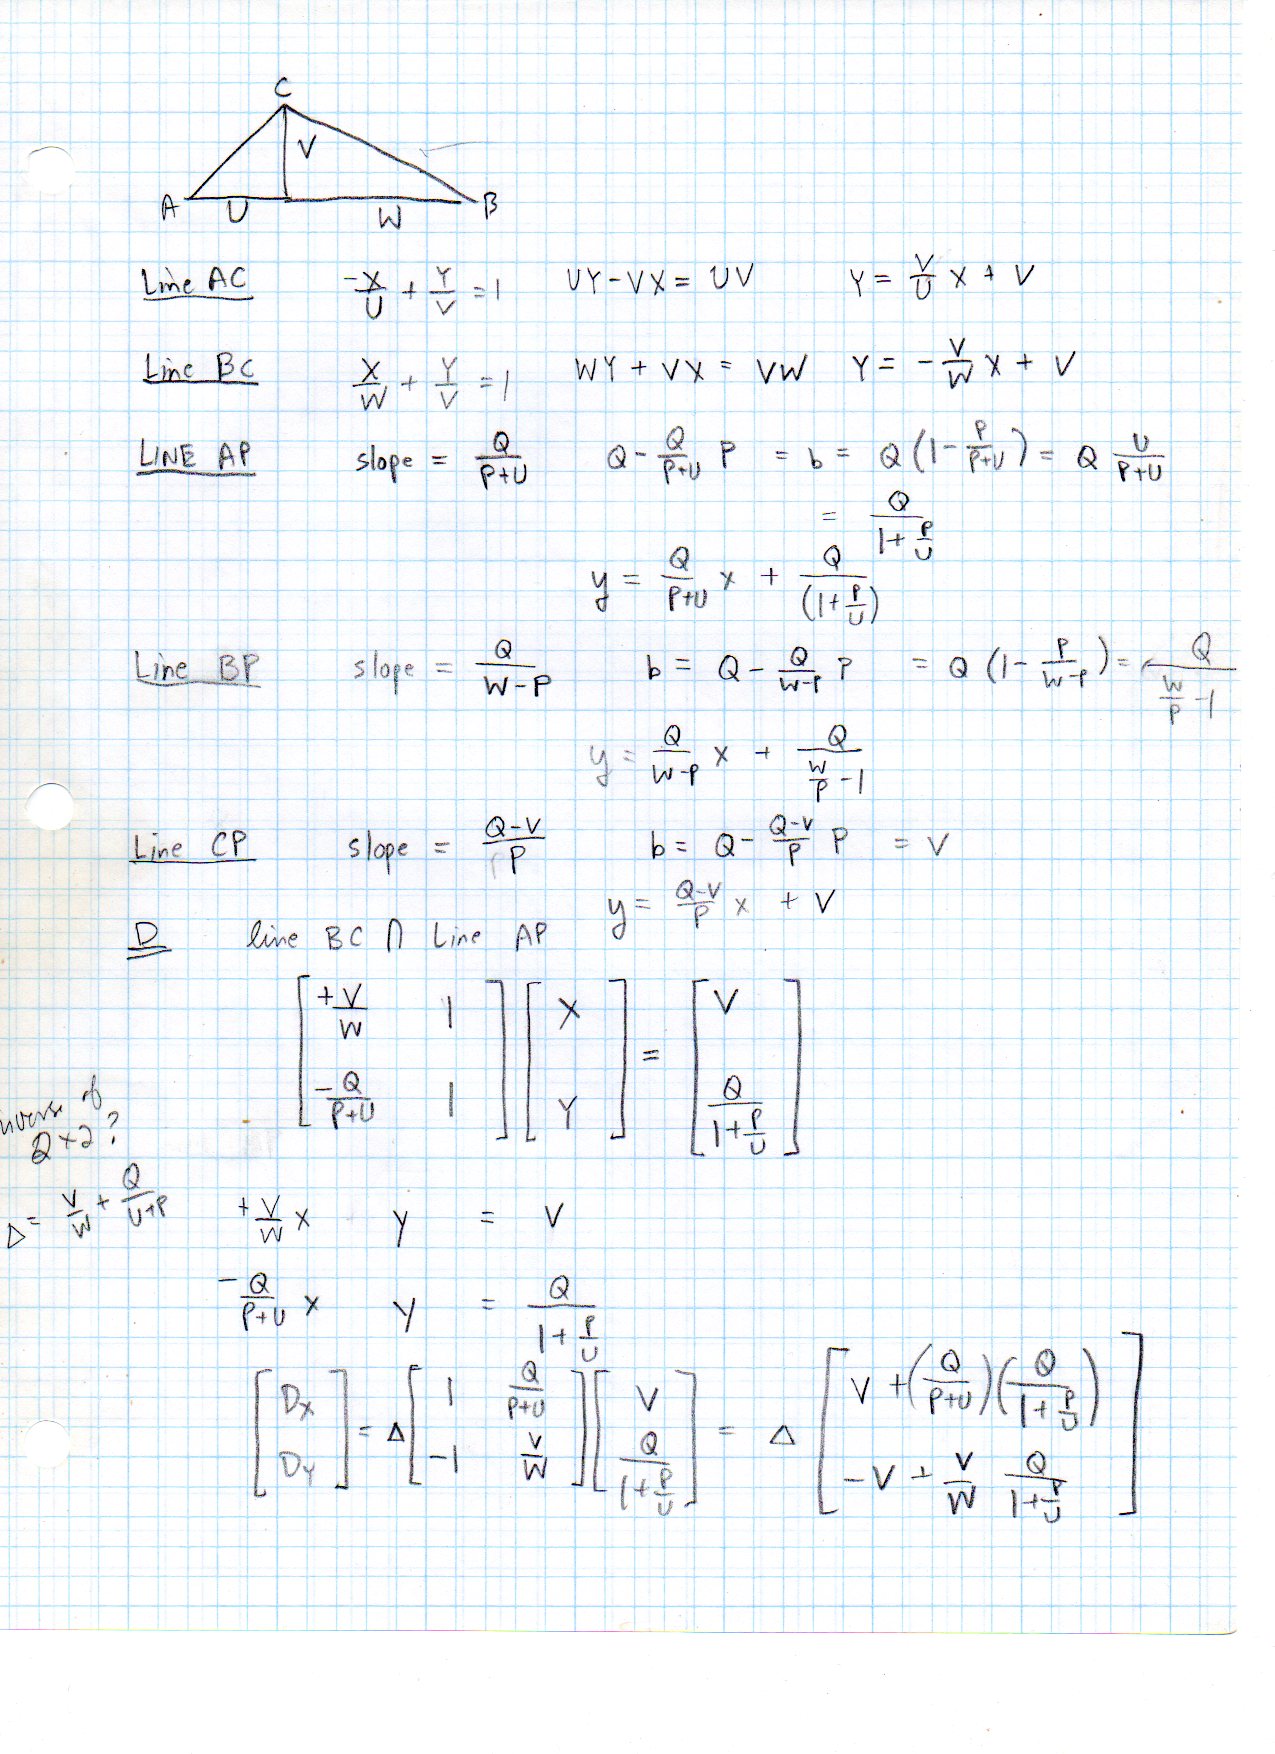 C
V
A U W B
Line AC -X/U + Y/V = 1 UY - VX = UV Y = V/U X + V
Line BC X/W + Y/V = 1 WY + VX = VW Y = - V/W X + V
LINE AP slope = Q/(P+U) Q - Q/(P+U) P = b = Q (1 - P/(P+U)) = Q U/(P+U)
= Q/(1 + P/U)
y = Q/(P+U) x + Q/(1 + P/U)
Line BP slope = Q/(W-P) b = Q - Q/(W-P) P = Q (1 - P/(W-P)) = Q/(W/P - 1)
y = Q/(W-P) x + Q/(W/P - 1)
Line CP slope = (Q-V)/P b = Q - (Q-V)/P P = V
y = (Q-V)/P x + V
D line BC ∩ Line AP
[ +V/W 1 ] [ X ] = [ V ]
[ -Q/(P+U) 1 ] [ Y ] [ Q/(1 + P/U) ]
nverse of
2x2?
Δ = V/W + Q/(U+P)
+V/W x y = V
-Q/(P+U) x y = Q/(1 + P/U)
[ Dx ] = Δ [ 1 Q/(P+U) ] [ V ] = Δ [ V + (Q/(P+U)) (Q/(1 + P/U)) ]
[ Dy ] [ -1 V/W ] [ Q/(1 + P/U) ] [ -V + V/W Q/(1 + P/U) ]